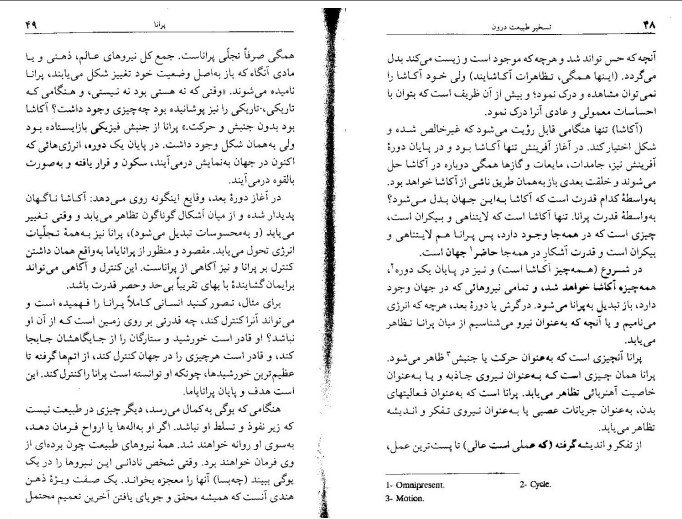 ۴۸
تسخیر طبیعت درون
آنچه که حس تواند شد و هرچه که موجود است و زیست می‌کند بدل
می‌گردد. (اینها همگی، تظاهرات آکاشایند) ولی خود آکاشا را
نمی‌توان مشاهده و درک نمود؛ و بیش از آن ظریف است که بتوان با
احساسات معمولی و عادی آنرا درک نمود.
(آکاشا) تنها هنگامی قابل رؤیت می‌شود که غیرخالص شده و
شکل اختیار کند. در آغاز آفرینش تنها آکاشا بود و در پایان دورهٔ
آفرینش نیز، جامدات، مایعات و گازها همگی دوباره در آکاشا حل
می‌شوند و خلقت بعدی باز به‌همان طریق ناشی از آکاشا خواهد بود.
به‌واسطهٔ کدام قدرت است که آکاشا به‌این جهان بدل می‌شود؟
به‌واسطهٔ قدرت پرانا. تنها آکاشا است که لایتناهی و بیکران است،
چیزی است که در همه‌جا وجود دارد، پس پرانا هم لایتناهی و
بیکران است و قدرت آشکار در همه‌جا حاضر¹ جهان است.
در شروع (همه‌چیز آکاشا است) و نیز در پایان یک دوره²،
همه‌چیزه آکاشا خواهد شد، و تمامی نیروهائی که در جهان وجود
دارد، باز تبدیل به‌پرانا می‌شود. درگرش یا دورهٔ بعد، هرچه که انرژی
می‌نامیم و یا آنچه که به‌عنوان نیرو می‌شناسیم از میان پرانا تظاهر
می‌یابد.
پرانا آنچیزی است که به‌عنوان حرکت یا جنبش³ ظاهر می‌شود.
پرانا همان چیزی است که به‌عنوان نیروی جاذبه و یا به‌عنوان
خاصیت آهنربائی تظاهر می‌یابد. پرانا است که به‌عنوان فعالیتهای
بدن، به‌عنوان جریانات عصبی یا به‌عنوان نیروی تفکر و اندیشه
تظاهر می‌یابد.
از تفکر و اندیشه گرفته (که عملی است عالی) تا پست‌ترین عمل،
1- Omnipresent. 2- Cycle.
3- Motion.
پرانا
۴۹
همگی صرفاً تجلّی پراناست. جمع کل نیروهای عالم، ذهنی و یا
مادی آنگاه که باز به‌اصل وضعیت خود تغییر شکل می‌یابند، پرانا
نامیده می‌شوند. «وقتی که نه هستی بود نه نیستی، و هنگامی که
تاریکی، تاریکی را نیز پوشانیده بود چه‌چیزی وجود داشت؟ آکاشا
بود بدون جنبش و حرکت.» پرانا از جنبش فیزیکی بازایستاده بود
ولی به‌همان شکل وجود داشت. در پایان یک دوره، انرژی‌هائی که
اکنون در جهان به‌نمایش درمی‌آیند، سکون و قرار یافته و به‌صورت
بالقوه درمی‌آیند.
در آغاز دورهٔ بعد، وقایع اینگونه روی می‌دهد: آکاشا ناگهان
پدیدار شده و از میان اشکال گوناگون تظاهر می‌یابد و وقتی تغییر
می‌یابد (و به‌محسوسات تبدیل می‌شود)، پرانا نیز به‌همهٔ تجلّیات
انرژی تحول می‌یابد. مقصود و منظور از پرانایاما به‌واقع همان داشتن
کنترل بر پرانا و نیز آگاهی از پراناست. این کنترل و آگاهی می‌تواند
برایمان گشایندهٔ با بهای تقریباً بی‌حد و حصر قدرت باشد.
برای مثال، تصور کنید انسانی کاملاً پرانا را فهمیده است و
می‌تواند آنرا کنترل کند، چه قدرتی بر روی زمین است که از آن او
نباشد؟ او قادر است خورشید و ستارگان را از جایگاهشان جابجا
کند، و قادر است هرچیزی را در جهان کنترل کند، از اتم‌ها گرفته تا
عظیم‌ترین خورشیدها، چونکه او توانسته است پرانا را کنترل کند. این
است هدف و پایان پرانایاما.
هنگامی که یوگی به‌کمال می‌رسد، دیگر چیزی در طبیعت نیست
که زیر نفوذ و تسلط او نباشد. اگر او به‌اله‌ها یا ارواح فرمان دهد،
به‌سوی او روانه خواهند شد. همهٔ نیروهای طبیعت چون برده‌ای از
وی فرمان خواهند برد. وقتی شخص نادانی این نیروها را در یک
یوگی ببیند (چه‌بسا) آنها را معجزه بخواند. یک صفت ویژهٔ ذهن
هندی آنست که همیشه محقق و جویای یافتن آخرین تعمیم محتمل